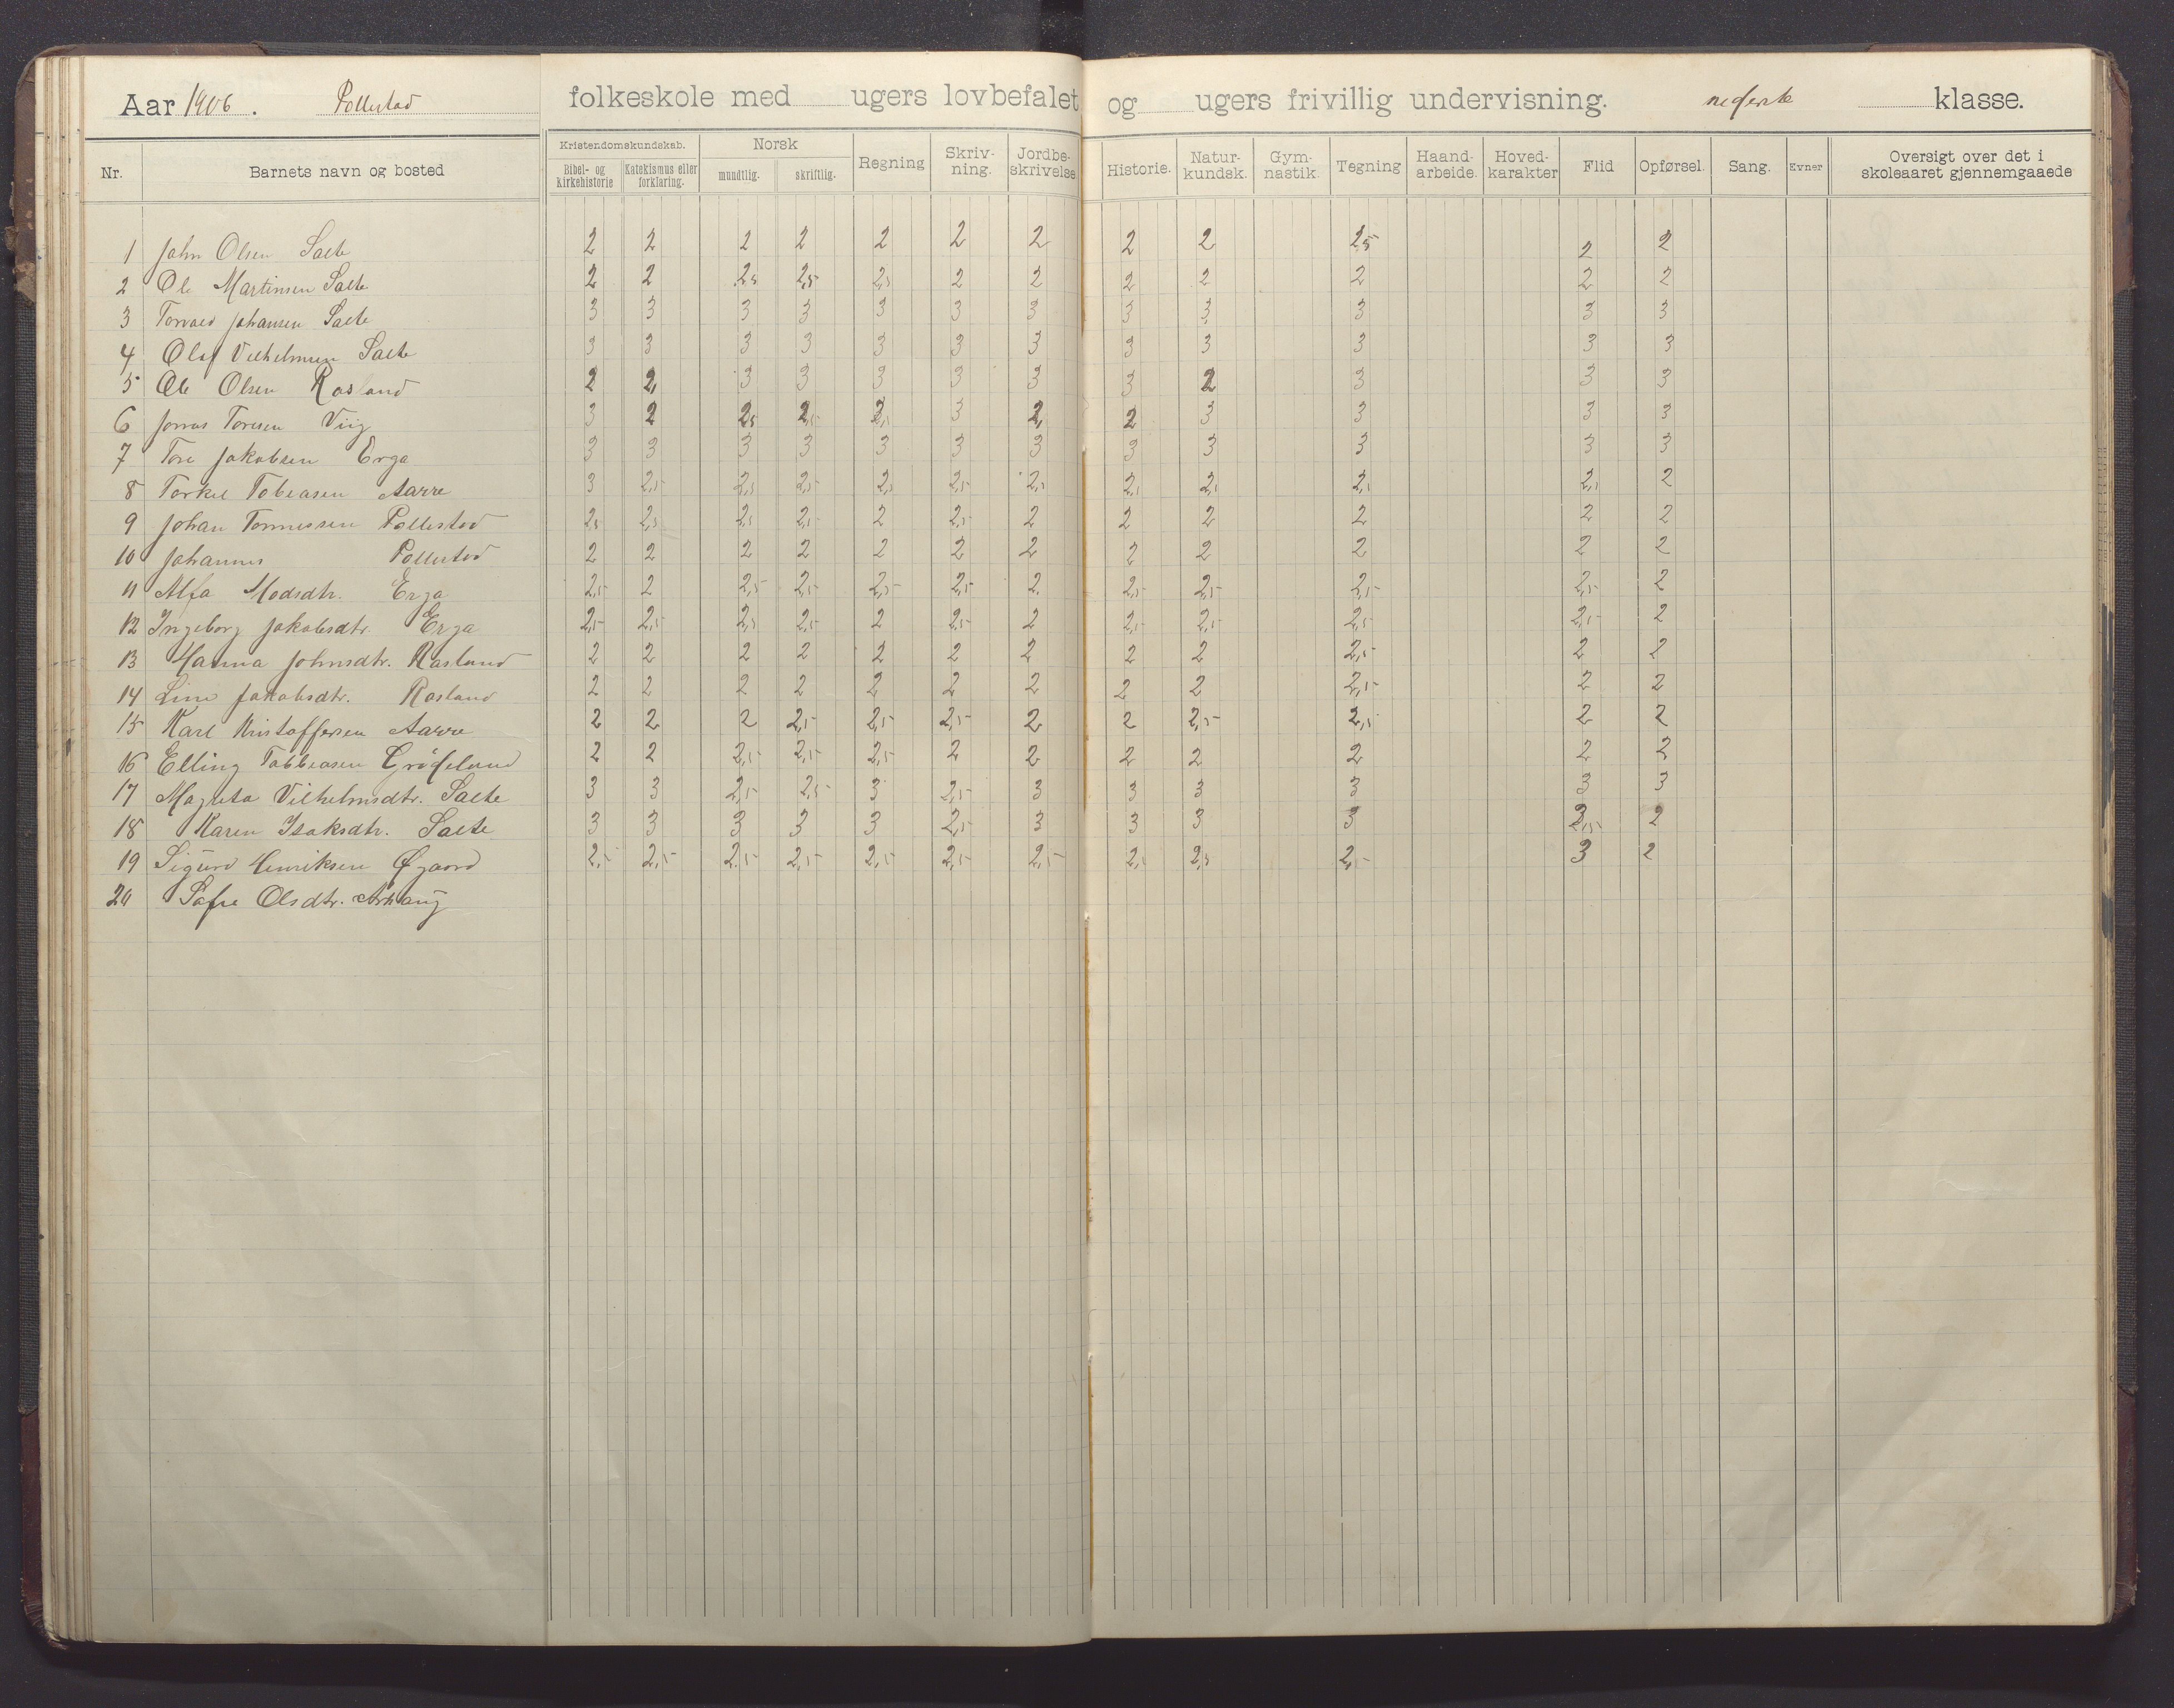 Aar 1906. Pollestad folkeskole med ugers lovbefalet og ugers frivillig undervisning. nederste klasse.
Nr. Barnets navn og bosted Kristendomskundskab. Bibel- og kirkehistorie Katekismus eller forklaring. Norsk mundtlig. skriftlig. Regning Skrivning. Jordbeskrivelse Historie. Naturkundsk. Gymnastik. Tegning Haandarbeide. Hovedkarakter Flid Opførsel. Sang. Evner Oversigt over det i skoleaaret gjennemgaaede
1 John Olsen Salte 2 2 2 2 2 2 2 2 2 2,5 2 2
2 Ole Martinsen Salte 2 2 2,5 2,5 2,5 2 2 2 2 2 2 2
3 Torvald Johansen Salte 3 3 3 3 3 3 3 3 3 3 3 3
4 Olaf Vilhelmsen Salte 3 3 3 3 3 3 3 3 3 3 3 3
5 Ole Olsen Rosland 2 2 3 3 3 3 3 3 2 3 3 3
6 Jonas Toresen Viig 3 2 2,5 2,5 2,5 3 2 2 3 3 3 3
7 Tore Jakobsen Erga 3 3 3 3 3 3 3 3 3 3 3 3
8 Torkel Tobiasen Aarre 3 2,5 2,5 2,5 2,5 2,5 2,5 2,5 2,5 2,5 2,5 2
9 Johan Tønnessen Pollestad 2,5 2,5 2,5 2,5 2 2,5 2 2 2 2 2 2
10 Johannes Pollestad 2 2 2 2 2 2 2 2 2 2 2 2
11 Alfa Madsdtr. Erga 2,5 2 2,5 2,5 2,5 2,5 2 2,5 2,5 2,5 2,5 2
12 Ingeborg Jakobsdtr. Erga 2,5 2,5 2,5 2,5 2 2,5 2 2,5 2,5 2,5 2,5 2
13 Hanna Johnsdtr. Rosland 2 2 2 2 2 2 2 2 2 2,5 2 2
14 Line Jakobsdtr. Rosland 2 2 2 2 2 2 2 2 2 2,5 2 2
15 Karl Kristoffersen Aarre 2 2 2 2,5 2,5 2,5 2 2 2,5 2,5 2 2
16 Elling Tobbiasen Grødeland 2 2 2,5 2,5 2,5 2 2 2 2 2 2 2
17 Magnta Vilhelmsdtr. Salte 3 3 2,5 2,5 3 2,5 3 3 3 3 3 3
18 Karen Isaksdtr. Salte 3 3 3 3 3 2,5 3 3 3 3 2,5 2
19 Sigurd Henriksen Øgaard 2,5 2,5 2,5 2,5 2,5 2,5 2,5 2,5 2,5 2,5 3 2
20 Sofie Olsdtr.